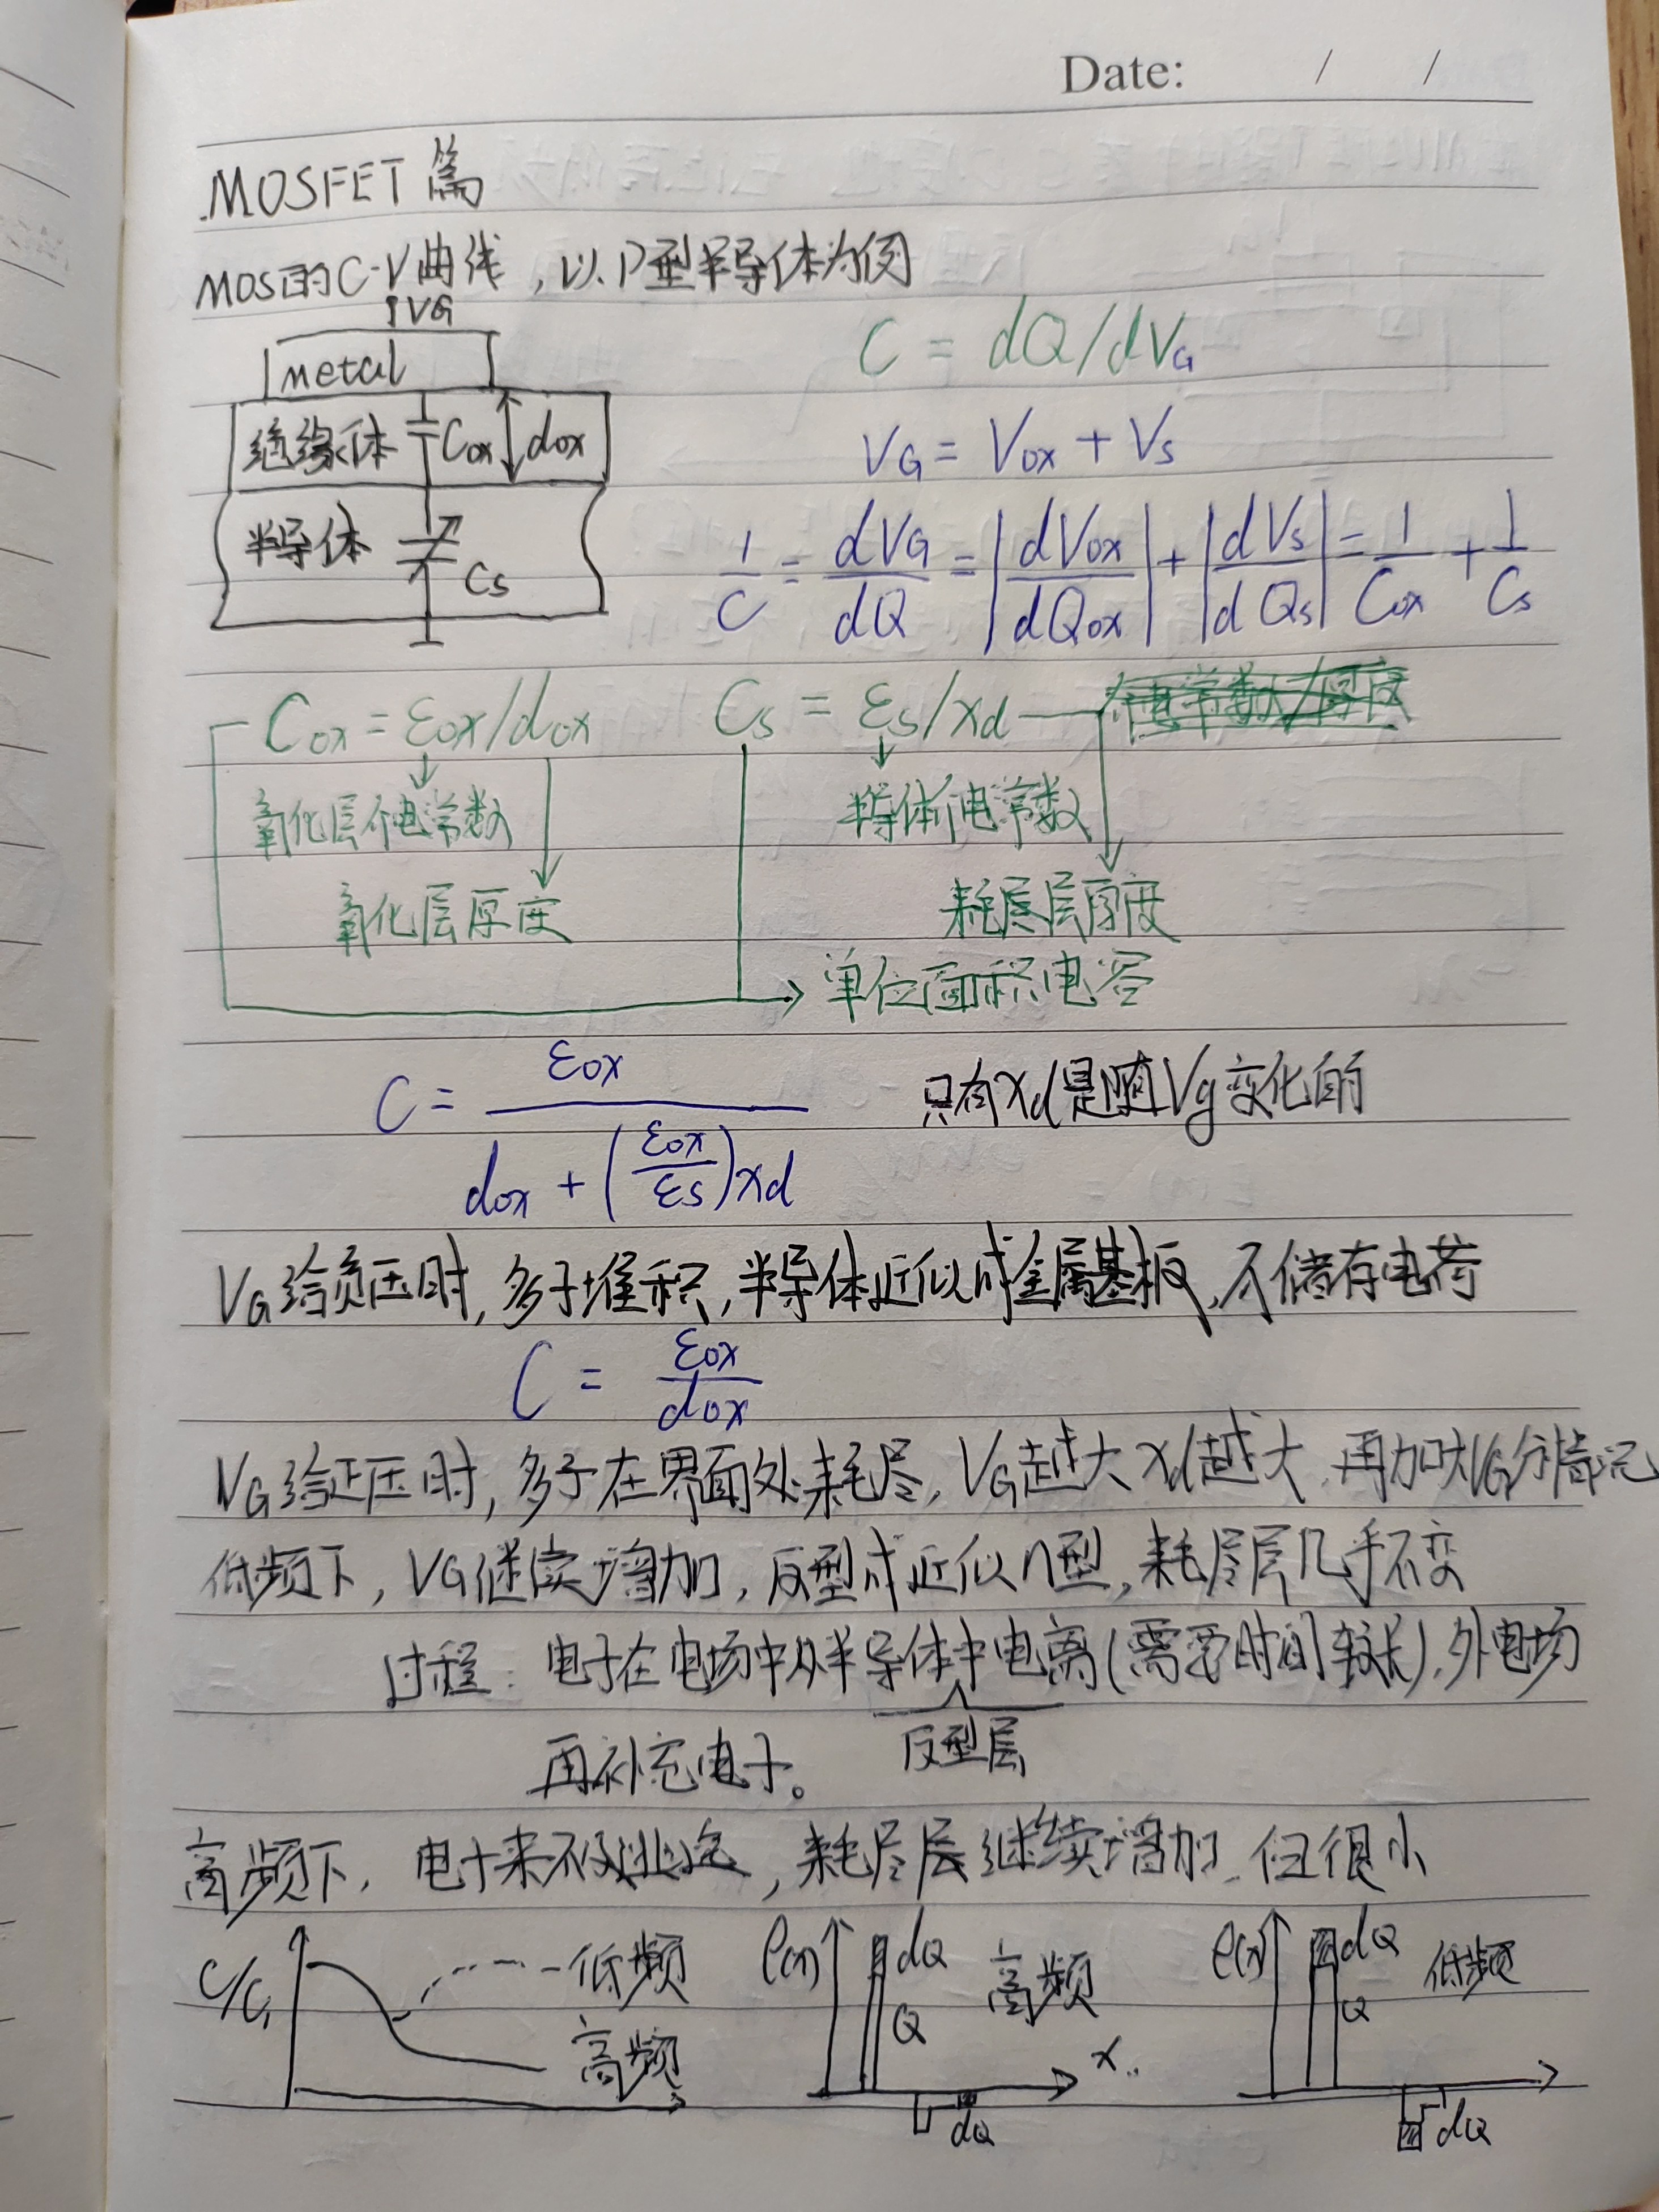 Date: / /
MOSFET 篇
MOS的C-V曲线，以P型半导体为例
VG
metal
C = dQ/dVG
绝缘体 Cox dox
VG = Vox + Vs
半导体 Cs
1/C = dVG/dQ = |dVox/dQox| + |dVs/dQs| = 1/Cox + 1/Cs
Cox = εox/dox Cs = εs/xd
氧化层介电常数 半导体介电常数
氧化层厚度 耗尽层厚度
单位面积电容
C = εox/(dox + (εox/εs)xd) 只有xd是随Vg变化的
VG给负压时，多子堆积，半导体近似成金属基板，不储存电荷
C = εox/dox
VG给正压时，多子在界面处耗尽，VG越大xd越大，再加大VG分情况
低频下，VG继续增加，反型成近似n型，耗尽层几乎不变
过程：电子在电场中从半导体中电离(需要时间较长)，外电场
反型层
再补充电子。
高频下，电子来不及，耗尽层继续增加，但很小
C/C 低频 高频
ρ(x) dQ Q 高频 x dQ
ρ(x) dQ Q 低频 dQ